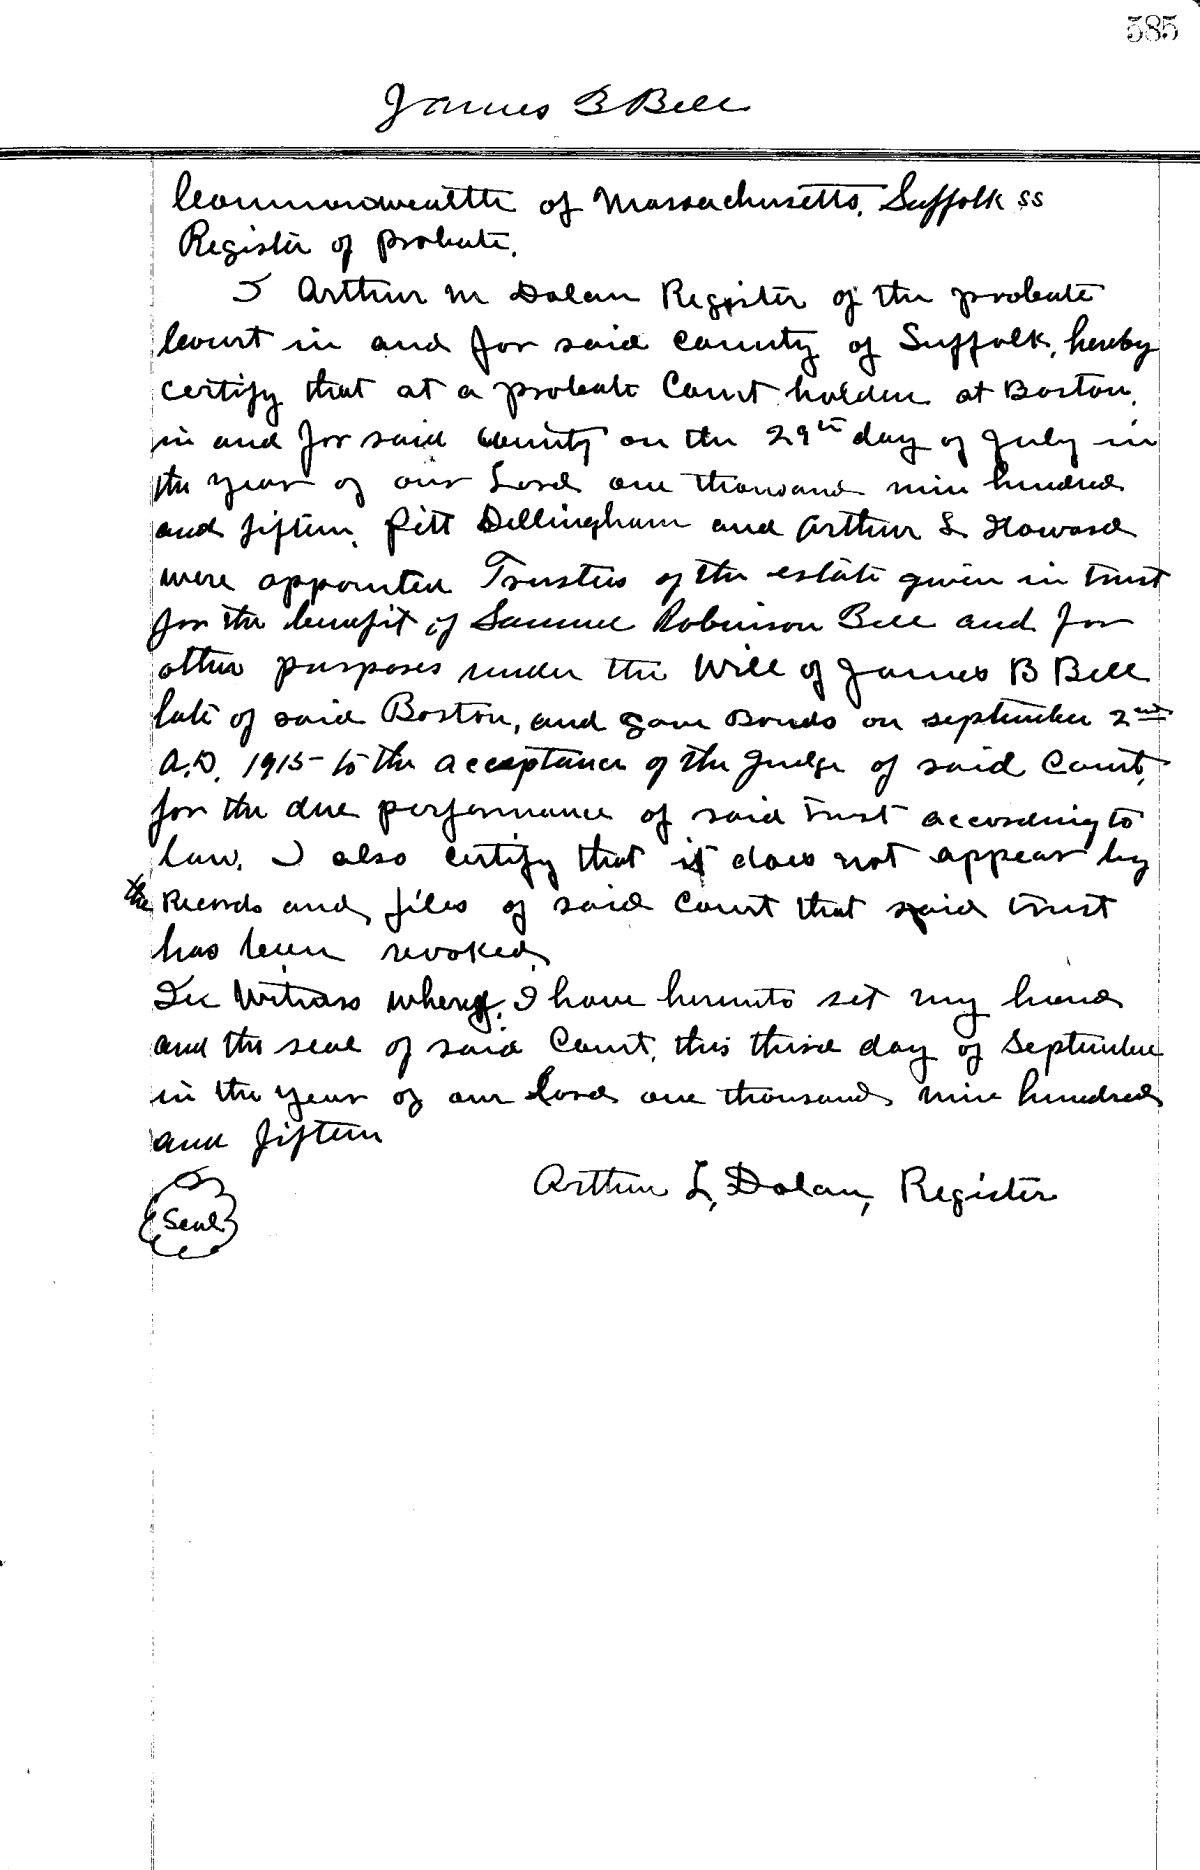 585
James B Bell
Commonwealth of Massachusetts, Suffolk ss
Register of probate.
I Arthur M Dolan Register of the probate
Court in and for said County of Suffolk, hereby
certify that at a probate Court holden at Boston,
in and for said County on the 29th day of July in
the year of our Lord one thousand nine hundred
and fifteen, Pitt Dillingham and Arthur L Howard
were appointed Trustees of the estate given in trust
for the benefit of Samuel Robinson Bell and for
other purposes under the Will of James B Bell
late of said Boston, and gave Bonds on September 2nd
A.D. 1915 to the acceptance of the Judge of said Court,
for the due performance of said trust according to
law. I also certify that it does not appear by
the Records and files of said Court that said trust
has been revoked.
In Witness whereof, I have hereunto set my hand
and the seal of said Court, this third day of September
in the year of our Lord one thousand nine hundred
and fifteen
Arthur L, Dolan, Register
Seal